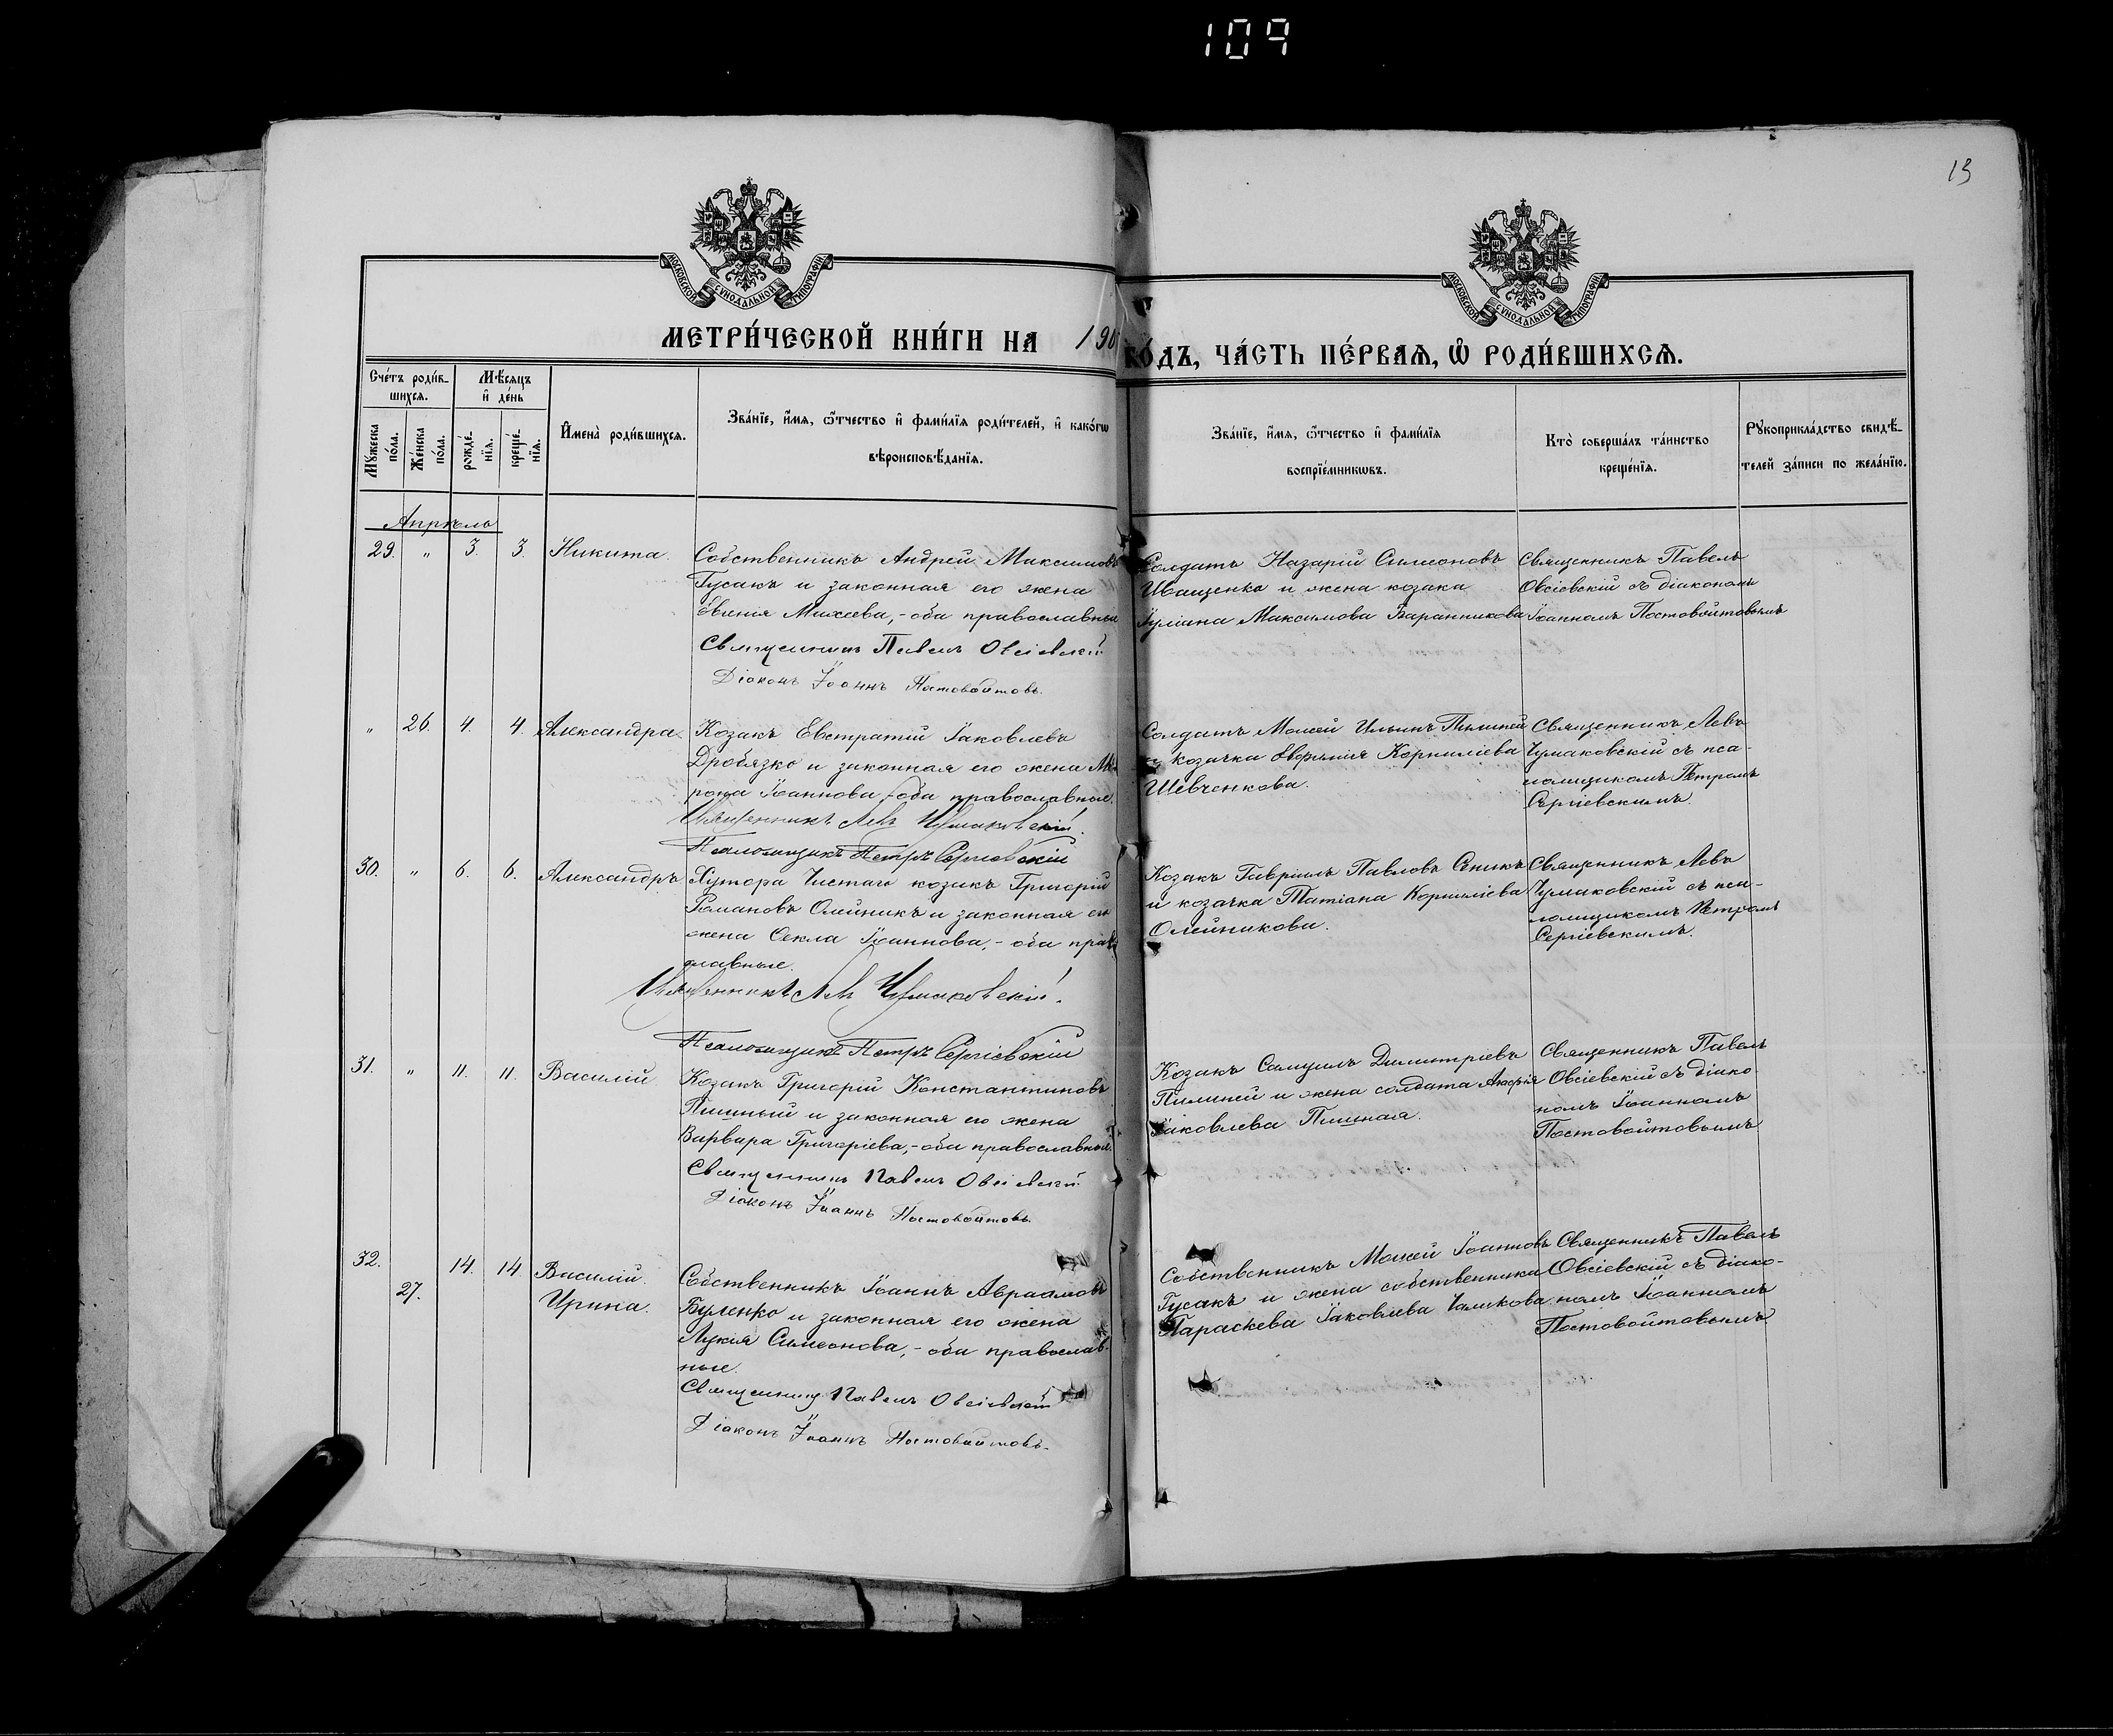 109
13
МОСКОВСКОЙ СѴНОДАЛЬНОЙ ТИПОГРАФІИ
МОСКОВСКОЙ СѴНОДАЛЬНОЙ ТИПОГРАФІИ
МЕТРИ́ЧЕСКОЙ КНИ́ГИ НА 190
ГО́ДЪ, ЧА́СТЬ ПЕ́РВАѦ, Ѡ РОДИ́ВШИХСѦ.
Сче́тъ роди́в-
шихсѧ.
Мѣ́сѧцъ
и де́нь
Мꙋ́жеска
по́ла.
Же́нска
по́ла.
рожде́-
нїѧ.
креще́-
нїѧ.
Имена̀ роди́вшихсѧ.
Зва́нїе, и́мѧ, ѻ́тчество и фами́лїѧ роди́телей, и како́гѡ
вѣроисповѣ́данїѧ.
Зва́нїе, и́мѧ, ѻ́тчество и фами́лїѧ
воспрїе́мникѡвъ.
Кто̀ соверша́лъ та́инство
креще́нїѧ.
Рꙋкоприкла́дство свидѣ́-
телей за́писи по жела́нїю.
Апрѣль
29. " 3. 3. Никита.
Собственникъ Андрей Максимовъ
Гусакъ и законная его жена
Евгенія Михеева, - оба православные
Священникъ Павелъ Овсіевскій
Діаконъ Іоаннъ Постовойтовъ.
Солдатъ Назарій Симеоновъ
Иващенко и жена козака
Іуліана Максимова Баранникова
Священникъ Павелъ
Овсіевскій съ діакономъ
Іоанномъ Постовойтовымъ
" 26. 4. 4. Александра
Козакъ Евстратій Іаковлевъ
Дробязко и законная его жена
Іоаннова, - оба православные.
Священникъ Левъ Чумаковскій.
Псаломщикъ Петръ Сергіевскій
Солдатъ Моисей Ильинъ
и козачка Евфимія Корниліева
Шевченкова.
Священникъ Левъ
Чумаковскій съ пса-
ломщикомъ Петромъ
Сергіевскимъ.
30. " 6. 6. Александръ
Хутора Чистаго козакъ Григорій
Романовъ Олейникъ и законная его
жена Ѳекла Іоаннова, - оба право
славные.
Священникъ Левъ Чумаковскій.
Псаломщикъ Петръ Сергіевскій
Козакъ Гавріилъ Павловъ
и козачка Татіана Корниліева
Олейникова.
Священникъ Левъ
Чумаковскій съ пса-
ломщикомъ Петромъ
Сергіевскимъ.
31. " 11. 11. Василій
Козакъ Григорій Константиновъ
Пишный и законная его жена
Варвара Григоріева, - оба православные.
Священникъ Павелъ Овсіевскій
Діаконъ Іоаннъ Постовойтовъ.
Козакъ Самуилъ Димитріевъ
и жена солдата
Іаковлева Пишная.
Священникъ Павелъ
Овсіевскій съ діако-
номъ Іоанномъ
Постовойтовымъ
32. 14. 14. Василій.
27. Ирина.
Собственникъ Іоаннъ Авраамовъ
Буленко и законная его жена
Лукія Симеонова, - оба православ-
ные.
Священникъ Павелъ Овсіевскій
Діаконъ Іоаннъ Постовойтовъ.
Собственникъ Моисей Іоанновъ
Гусакъ и жена собственника
Параскева Іаковлева
Священникъ Павелъ
Овсіевскій съ діако-
номъ Іоанномъ
Постовойтовымъ